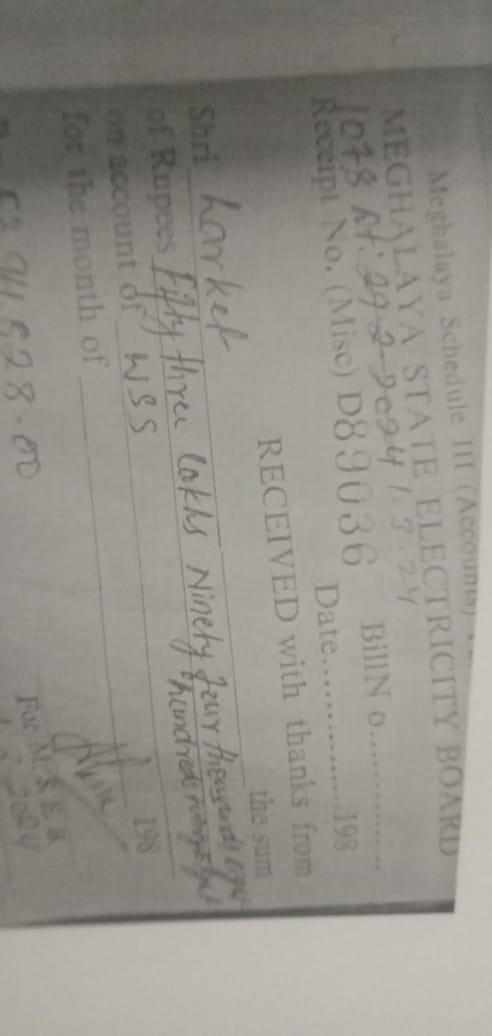 Meghalaya Schedule III (Accounts)
MEGHALAYA STATE ELECTRICITY BOARD
1078 dt: 29-2-2024 1.3.24
BillN o..............
Receipt No. (Misc) D89036 Date..............198
RECEIVED with thanks from
Shri
the sum
of Rupees Fifty three lakhs Ninety four thousands eight
hundred
on account of WSS
198
for the month of
For M. S E B